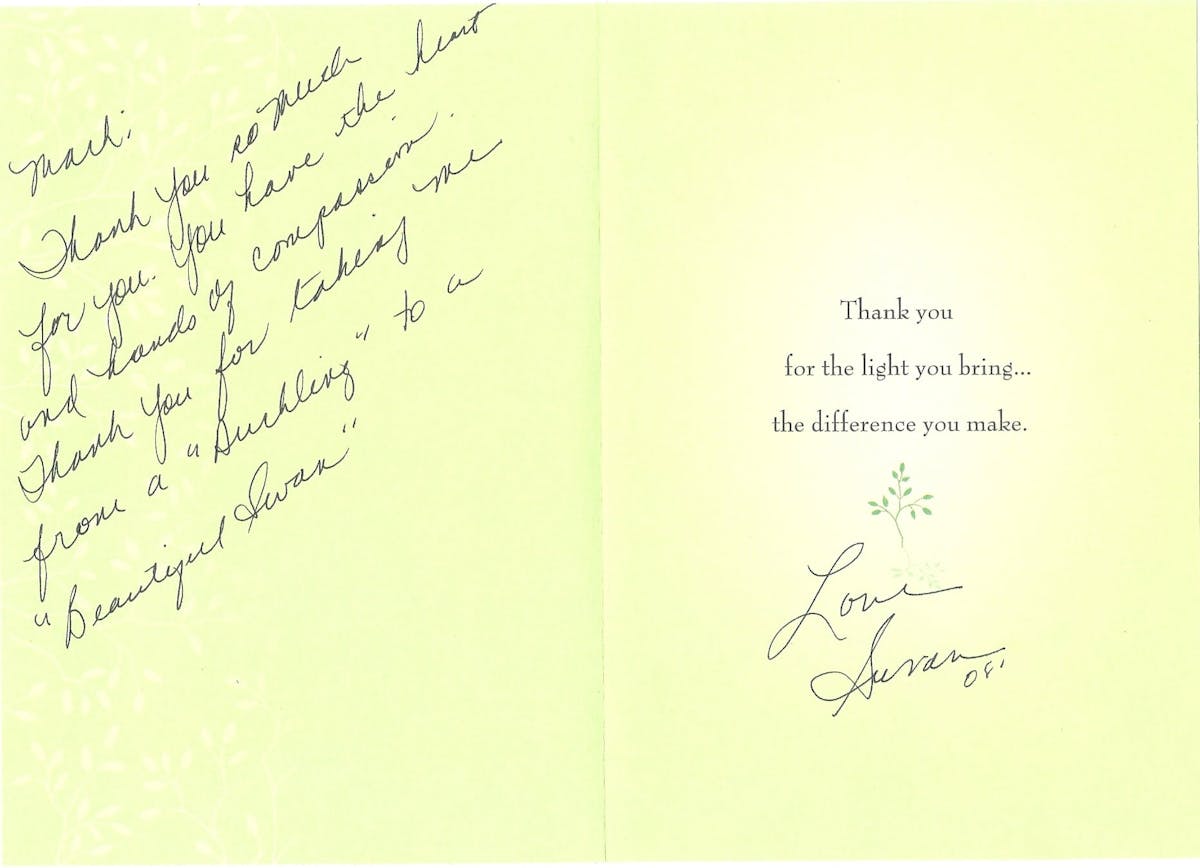 Mark:
Thank you so much
for you. You have the heart
and hands of compassion.
Thank you for taking me
from a "Duckling" to a
"Beautiful Swan"
Thank you
for the light you bring...
the difference you make.
Love
Susan
08'